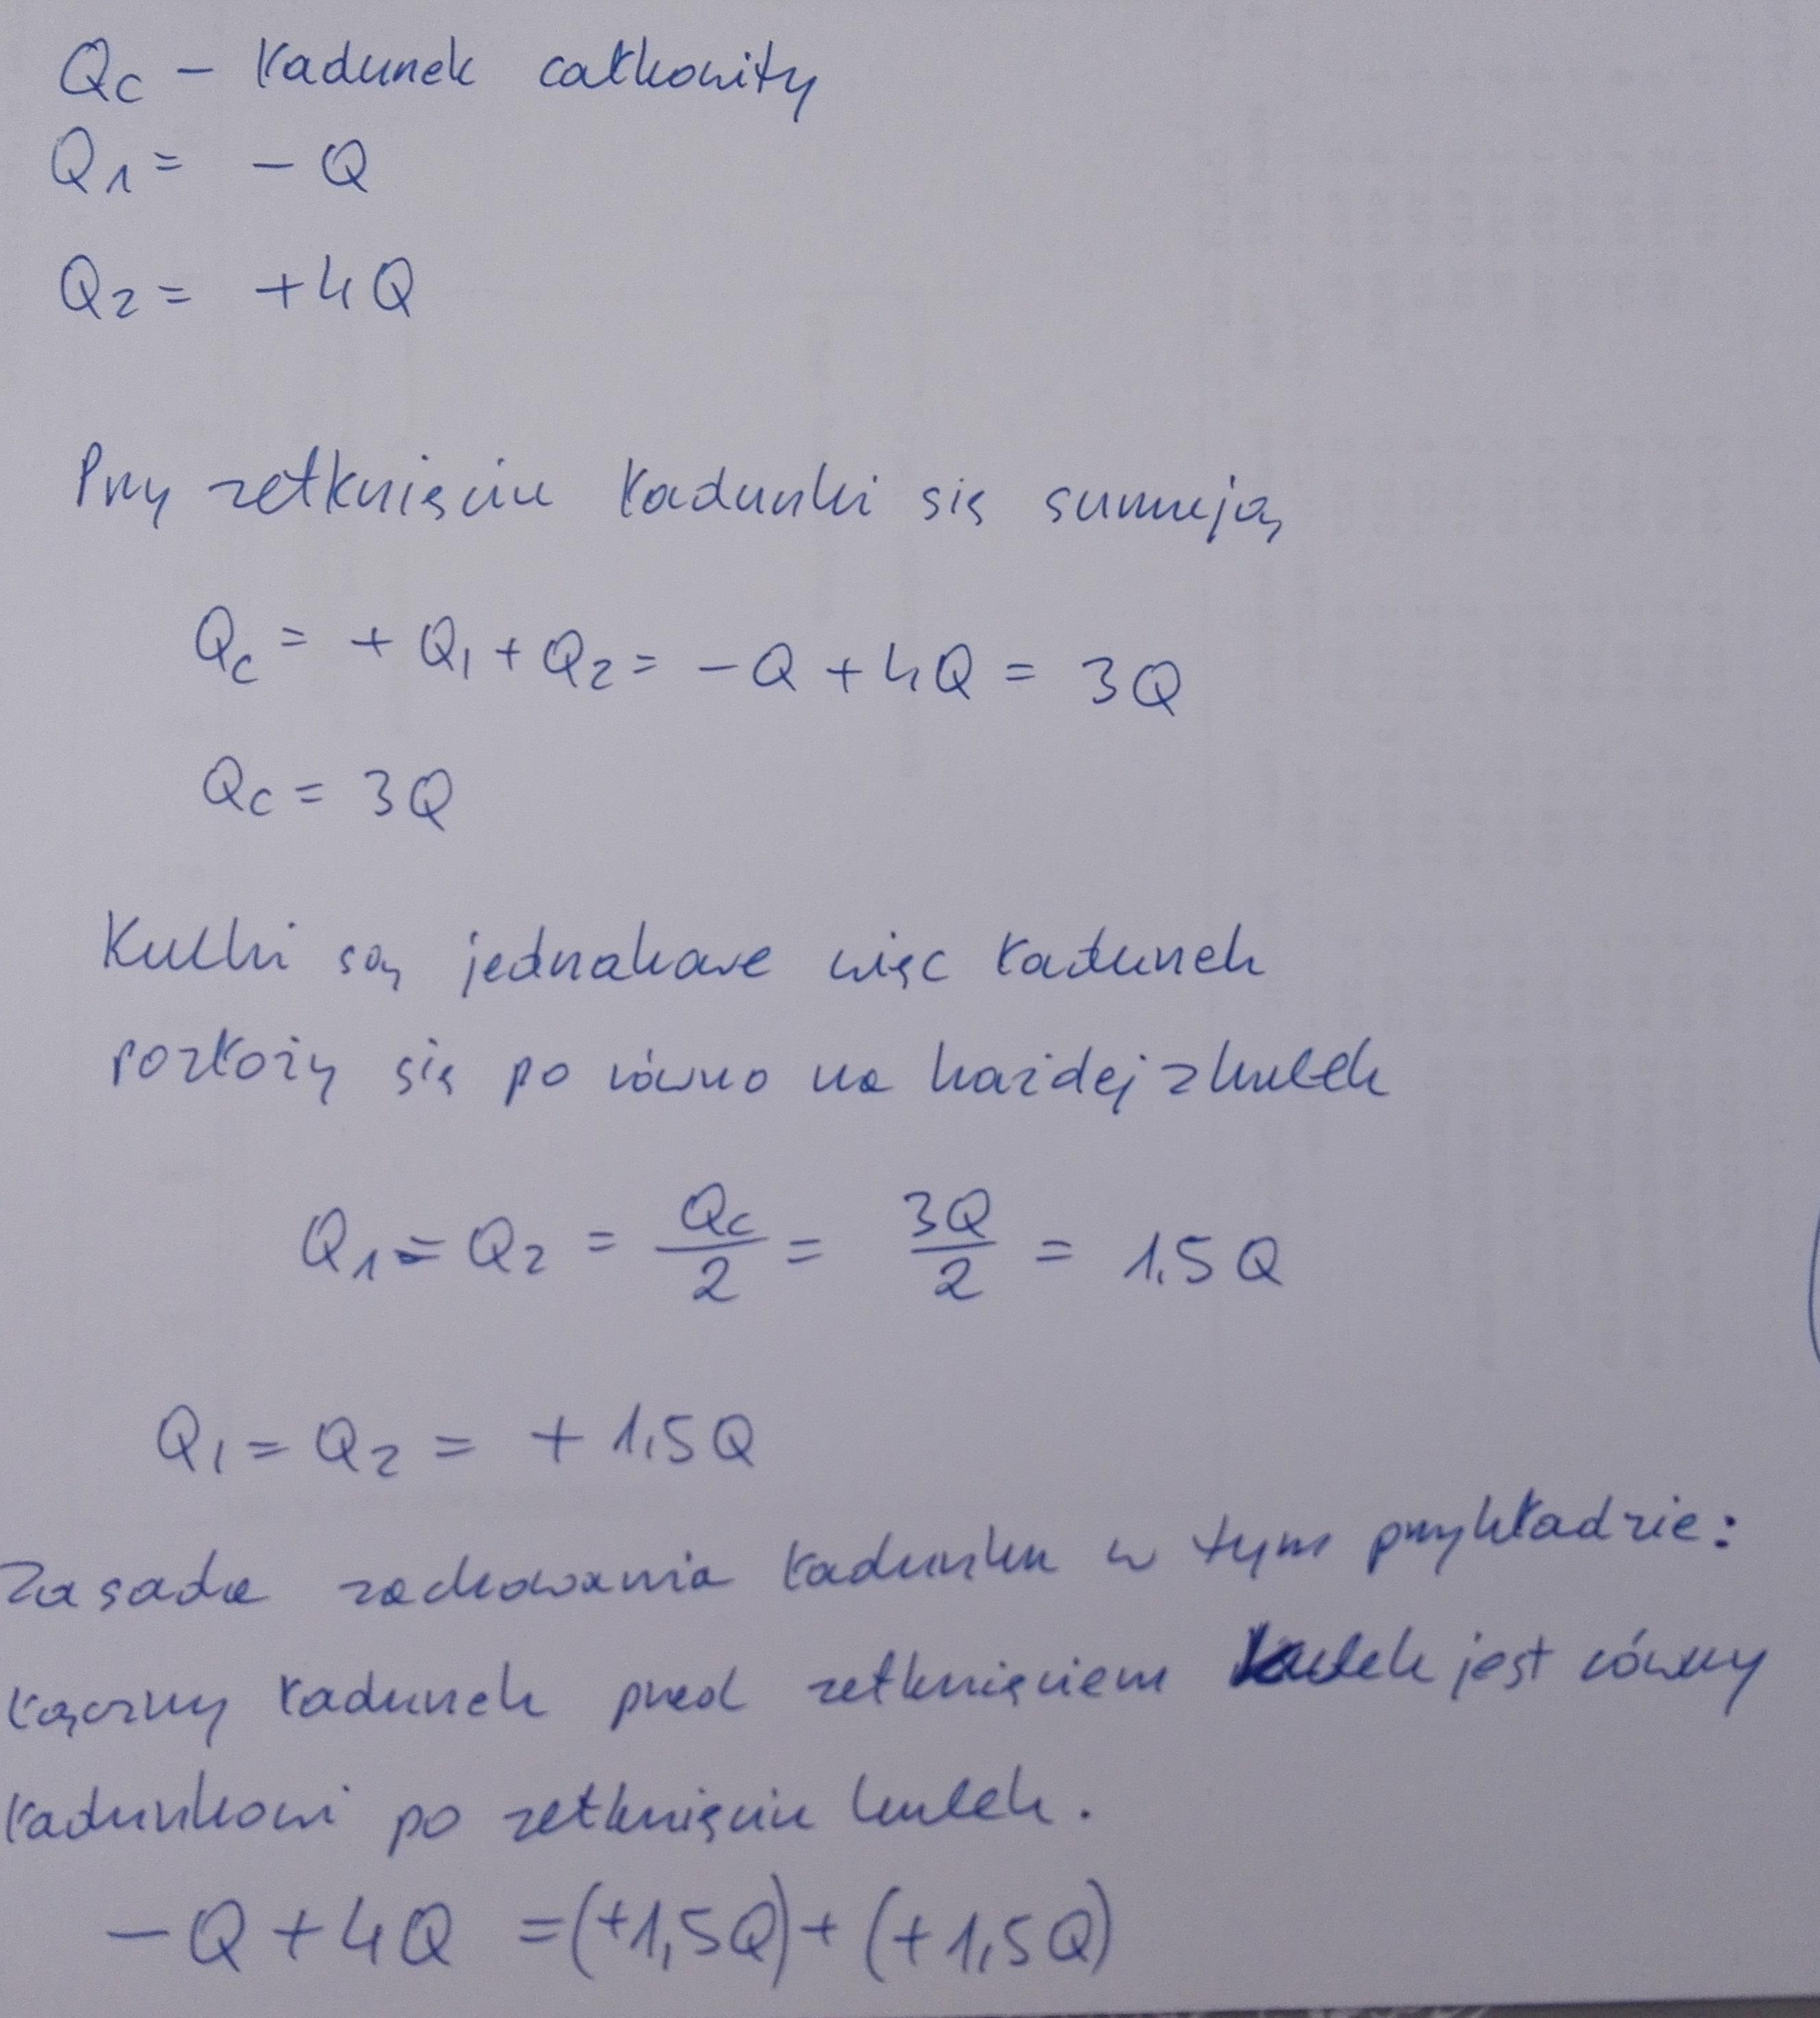 Qc - ładunek całkowity
Q1 = - Q
Q2 = + 4Q
Przy zetknięciu ładunki się sumują
Qc = + Q1 + Q2 = - Q + 4Q = 3Q
Qc = 3Q
Kulki są jednakowe więc ładunek
rozłoży się po równo na każdej z kulek
Q1 = Q2 = Qc/2 = 3Q/2 = 1,5 Q
Q1 = Q2 = + 1,5 Q
Zasada zachowania ładunku w tym przykładzie:
łączny ładunek przed zetknięciem kulek jest równy
ładunkowi po zetknięciu kulek.
- Q + 4Q = (+1,5Q) + (+1,5Q)